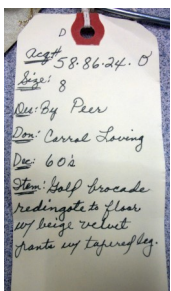 D
Acq# 58.86.24.0
Size: 8
Des: By Peer
Don: Carral Loving
Dec: 60's
Item: Golf brocade
redingote to floor
w/ beige velvet
pants w/ tapered leg.